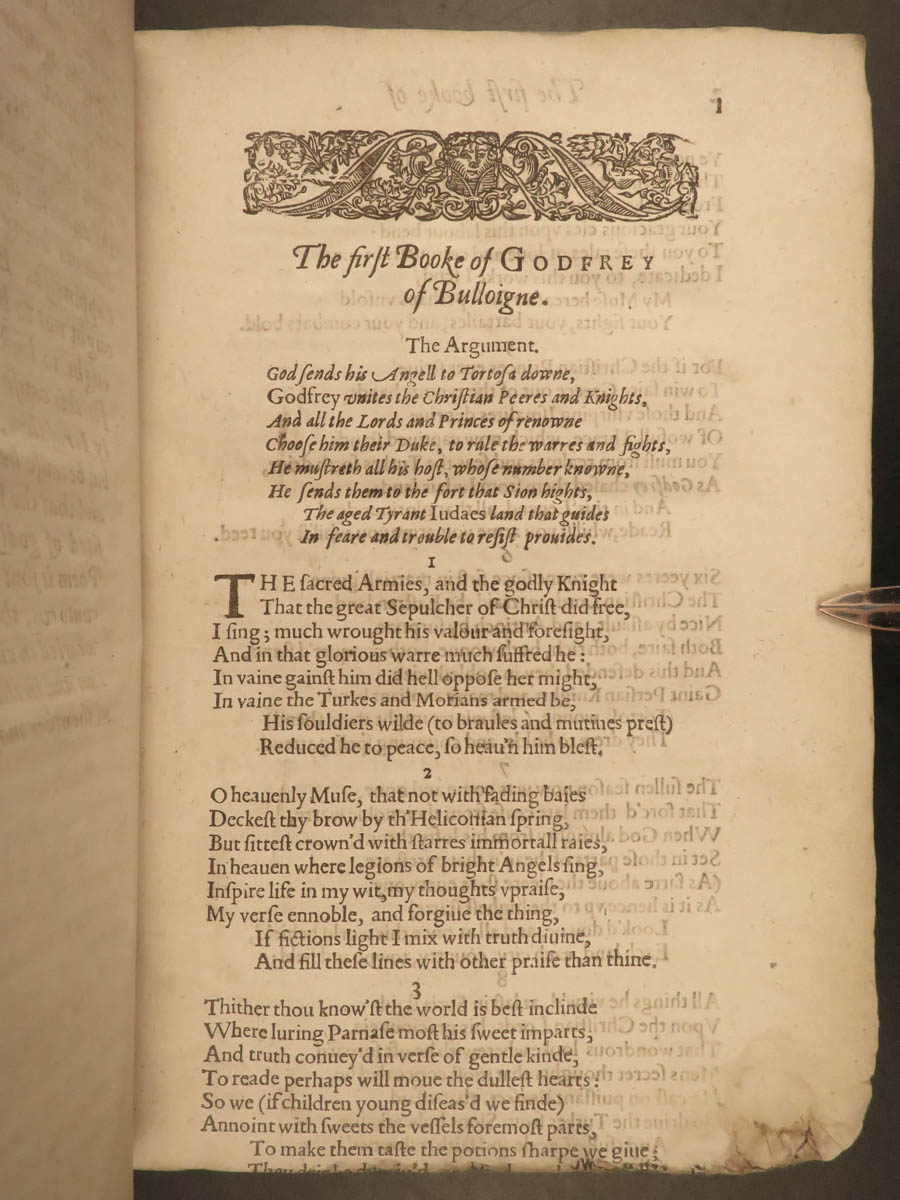 1
The firſt Booke of GODFREY
of Bulloigne.
The Argument.
God ſends his Angell to Tortoſa downe,
Godfrey vnites the Chriſtian Peeres and Knights,
And all the Lords and Princes of renowne
Chooſe him their Duke, to rule the warres and fights,
He muſtreth all his hoſt, whoſe number knowne,
He ſends them to the fort that Sion hights,
The aged Tyrant Iudaes land that guides
In feare and trouble to reſiſt prouides.
1
THE ſacred Armies, and the godly Knight
That the great Sepulcher of Chriſt did free,
I ſing; much wrought his valour and foreſight,
And in that glorious warre much ſuffred he:
In vaine gainſt him did hell oppoſe her might,
In vaine the Turkes and Morians armed be,
His ſouldiers wilde (to braules and mutines preſt)
Reduced he to peace, ſo heau'n him bleſt.
2
O heauenly Muſe, that not with fading baies
Deckeſt thy brow by th'Heliconian ſpring,
But ſitteſt crown'd with ſtarres immortall raies,
In heauen where legions of bright Angels ſing,
Inſpire life in my wit, my thoughts vpraiſe,
My verſe ennoble, and forgiue the thing,
If fictions light I mix with truth diuine,
And fill theſe lines with other praiſe than thine.
3
Thither thou know'ſt the world is beſt inclinde
Where luring Parnaſe moſt his ſweet imparts,
And truth conuey'd in verſe of gentle kinde,
To reade perhaps will moue the dulleſt hearts:
So we (if children young diſeas'd we finde)
Annoint with ſweets the veſſels foremoſt parts,
To make them taſte the potions ſharpe we giue;